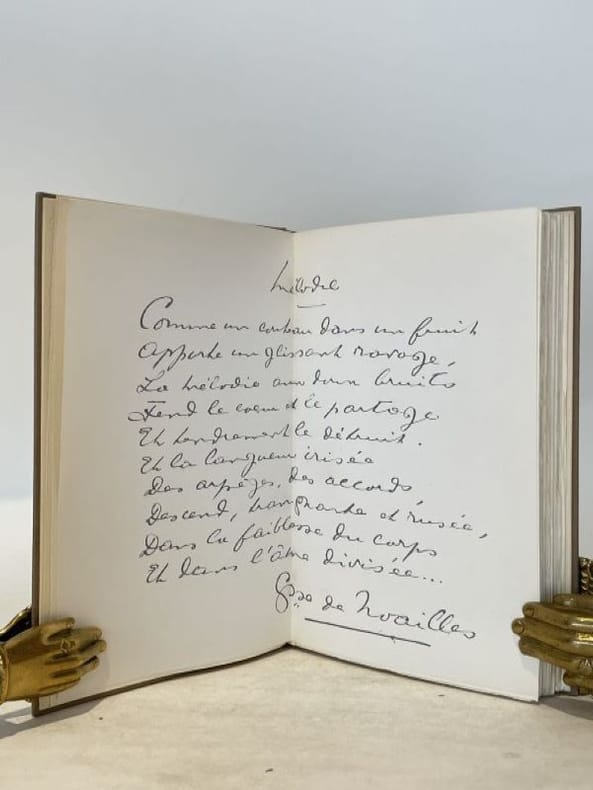 Mélodie
Comme un couteau dans un fruit
Apporte un glissant ravage,
La mélodie aux doux bruits
Fend le coeur et le partage
Et tendrement le détruit.
Et la langueur irisée
Des arpèges, des accords
Descend, tranchante et rusée,
Dans la faiblesse du corps
Et dans l'âme divisée...
Csse de Noailles